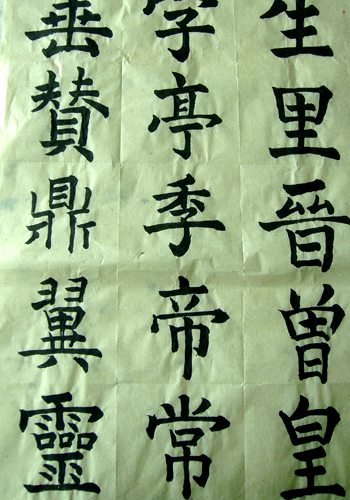 生里晉曾皇
字亭季帝常
垂贊鼎翼靈